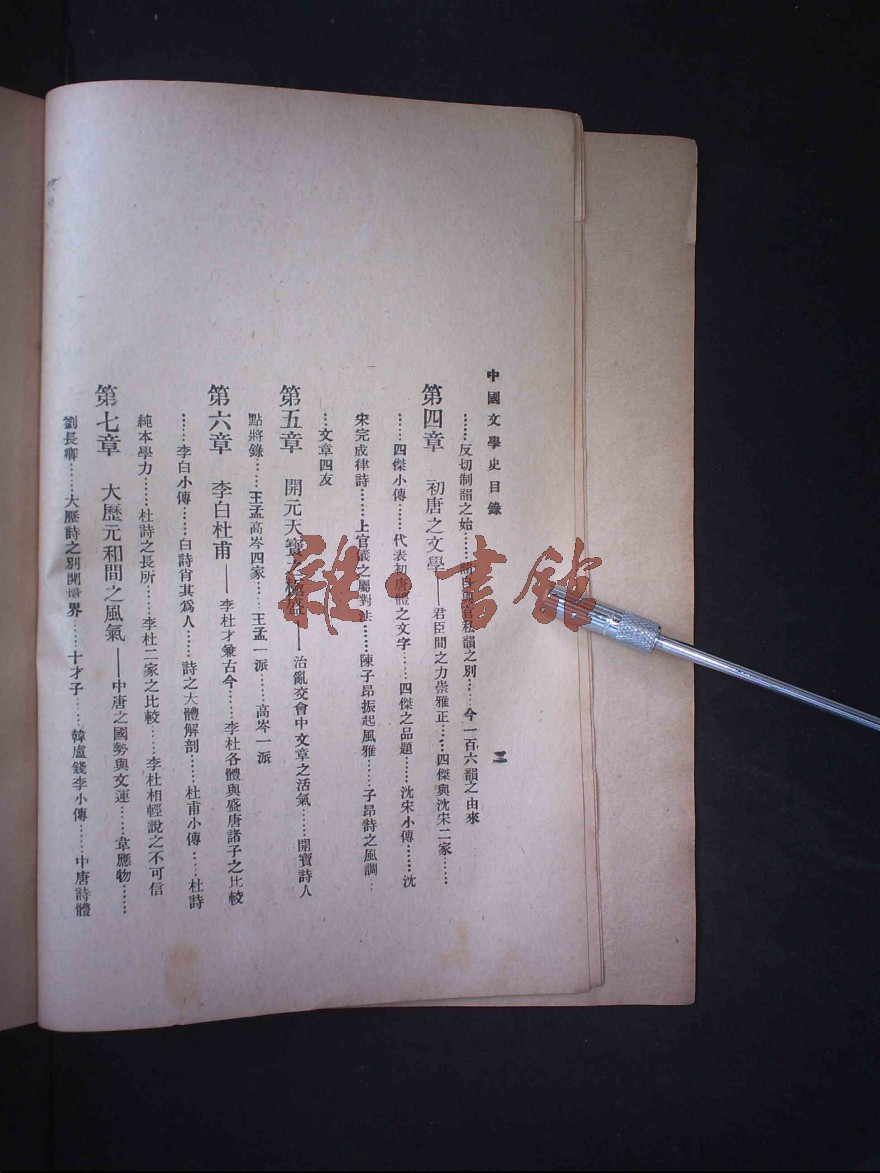 中國文學史目錄
三
……反切制韻之始……官私韻之別……今一百六韻之由來
第四章　初唐之文學——君臣間之力崇雅正……四傑與沈宋二家……
……四傑小傳……代表初唐體之文字……四傑之品題……沈宋小傳……沈
宋完成律詩……上官儀之屬對法……陳子昂振起風雅……子昂詩之風調…
…文章四友
第五章　開元天寶之極盛——治亂交會中文章之活氣……開寶詩人
點將錄……王孟高岑四家……王孟一派……高岑一派
第六章　李白杜甫——李杜才兼古今……李杜各體與盛唐諸子之比較
……李白小傳……白詩肖其爲人……詩之大體解剖……杜甫小傳……杜詩
純本學力……杜詩之長所……李杜二家之比較……李杜相輕說之不可信
第七章　大歷元和間之風氣——中唐之國勢與文運……韋應物……
劉長卿……大歷詩之別開境界……十才子……韓盧錢李小傳……中唐詩體
雜·書館